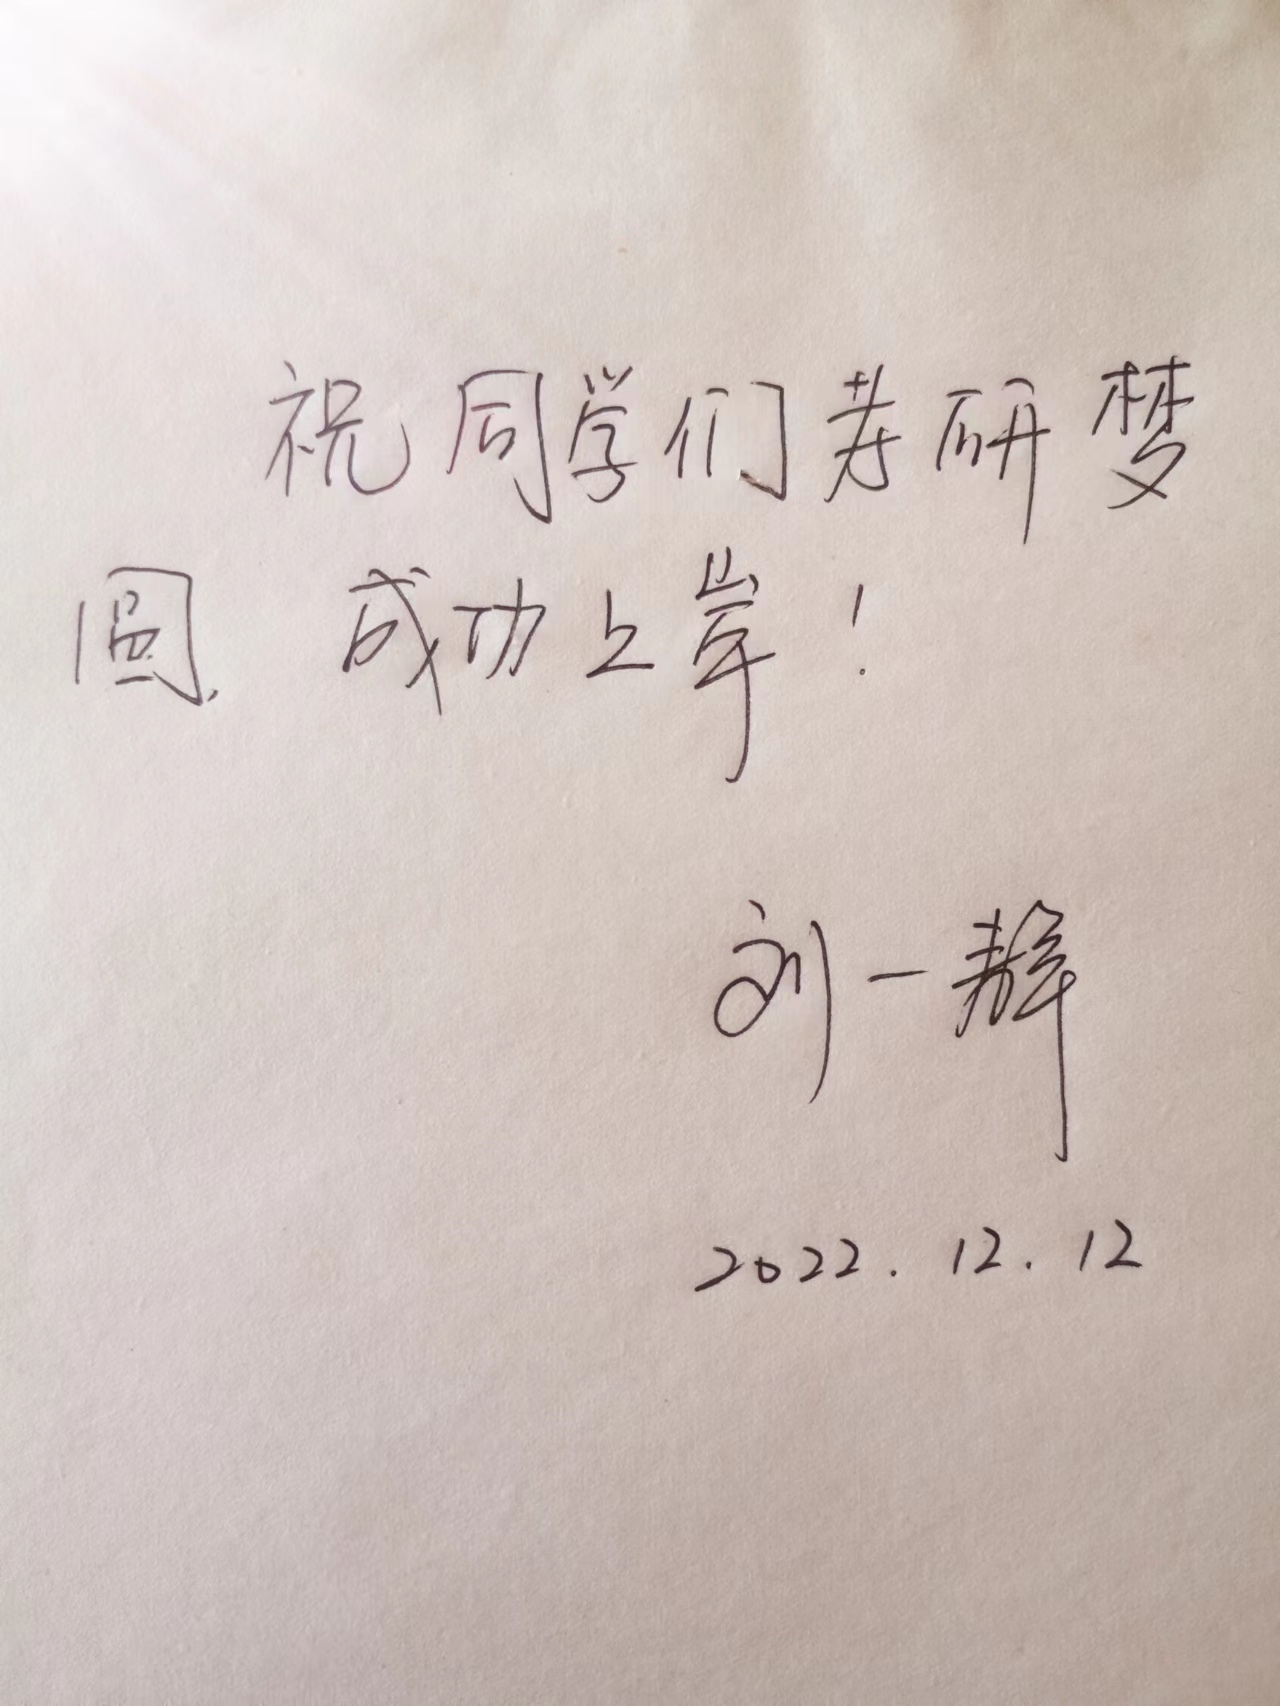 祝同学们考研梦
圆,成功上岸!
刘一静
2022.12.12